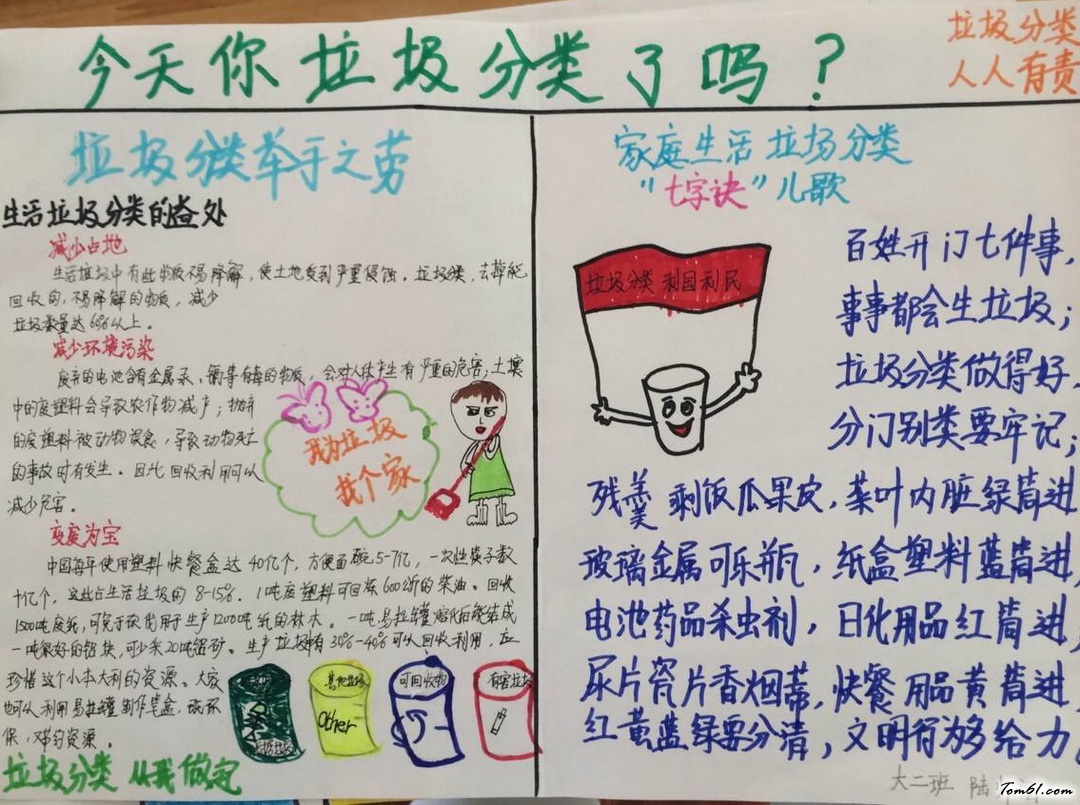 今天你垃圾分类了吗？
垃圾分类
人人有责
垃圾分类举手之劳
生活垃圾分类的益处
减少占地
生活垃圾中有些物质不易降解，使土地受到严重侵蚀。垃圾分类，去掉能
回收的，不易降解的物质，减少
垃圾数量达60%以上。
减少环境污染
废弃的电池含有金属汞、镉等有毒的物质，会对人体产生有严重的危害；土壤
中的废塑料会导致农作物减产；抛弃
的废塑料被动物误食，导致动物死亡
的事故时有发生。因此回收利用可以
减少危害。
我为垃圾
找个家
变废为宝
中国每年使用塑料快餐盒达40亿个，方便面碗5-7亿，一次性筷子数
十亿个，这些占生活垃圾的8-15%。1吨废塑料可回炼600公斤的柴油。回收
1500吨废纸，可免于砍伐用于生产1200吨纸的林木。一吨易拉罐熔化后能结成
一吨很好的铝块，可少采20吨铝矿。生产垃圾有30%-40%可以回收利用，应
珍惜这个小本大利的资源。大家
也可以利用易拉罐制作笔盒，既环
保，又节约资源。
其他垃圾
Other
可回收物
有害垃圾
垃圾分类 从我做起
家庭生活垃圾分类
“七字诀”儿歌
垃圾分类 利国利民
百姓开门七件事，
事事都会生垃圾；
垃圾分类做得好，
分门别类要牢记；
残羹剩饭瓜果皮，菜叶内脏绿筒进
玻璃金属可乐瓶，纸盒塑料蓝筒进，
电池药品杀虫剂，日化用品红筒进，
尿片瓷片香烟蒂，快餐用品黄筒进，
红黄蓝绿要分清，文明行为够给力。
大二班 陆
Tom61.com